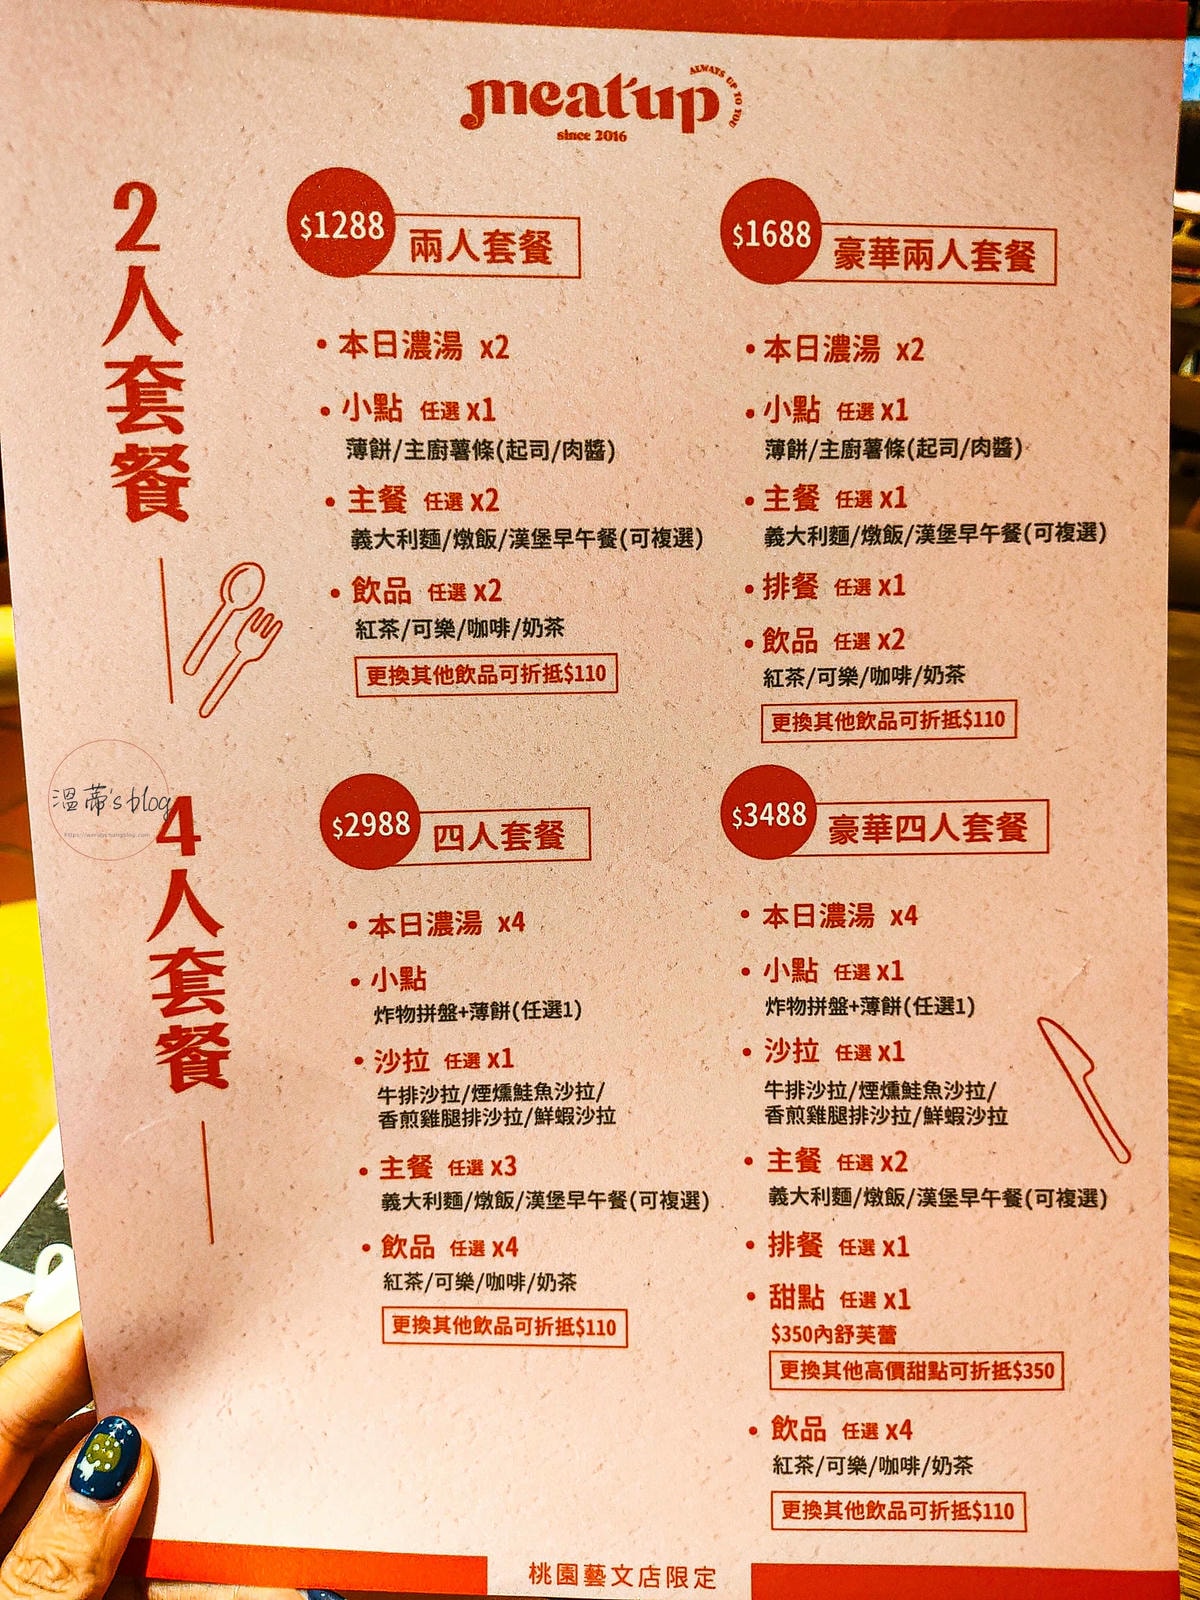 meat'up
ALWAYS UP TO YOU
since 2016
2人套餐
$1288
兩人套餐
• 本日濃湯 x2
• 小點 任選 x1
薄餅/主廚薯條(起司/肉醬)
• 主餐 任選 x2
義大利麵/燉飯/漢堡早午餐(可複選)
• 飲品 任選 x2
紅茶/可樂/咖啡/奶茶
更換其他飲品可折抵$110
$1688
豪華兩人套餐
• 本日濃湯 x2
• 小點 任選 x1
薄餅/主廚薯條(起司/肉醬)
• 主餐 任選 x1
義大利麵/燉飯/漢堡早午餐(可複選)
• 排餐 任選 x1
• 飲品 任選 x2
紅茶/可樂/咖啡/奶茶
更換其他飲品可折抵$110
溫蒂's blog
4人套餐
$2988
四人套餐
• 本日濃湯 x4
• 小點
炸物拼盤+薄餅(任選1)
• 沙拉 任選 x1
牛排沙拉/煙燻鮭魚沙拉/
香煎雞腿排沙拉/鮮蝦沙拉
• 主餐 任選 x3
義大利麵/燉飯/漢堡早午餐(可複選)
• 飲品 任選 x4
紅茶/可樂/咖啡/奶茶
更換其他飲品可折抵$110
$3488
豪華四人套餐
• 本日濃湯 x4
• 小點 任選 x1
炸物拼盤+薄餅(任選1)
• 沙拉 任選 x1
牛排沙拉/煙燻鮭魚沙拉/
香煎雞腿排沙拉/鮮蝦沙拉
• 主餐 任選 x2
義大利麵/燉飯/漢堡早午餐(可複選)
• 排餐 任選 x1
• 甜點 任選 x1
$350內舒芙蕾
更換其他高價甜點可折抵$350
• 飲品 任選 x4
紅茶/可樂/咖啡/奶茶
更換其他飲品可折抵$110
桃園藝文店限定